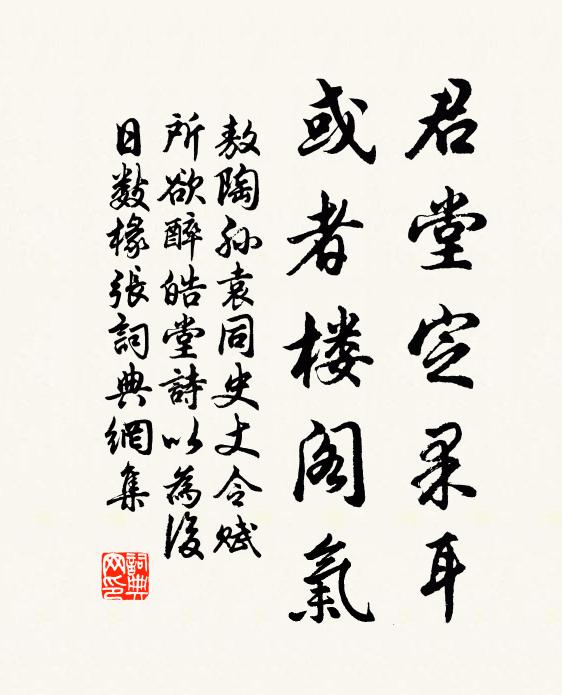 君堂定果耳
或者楼阁氣
敖陶孙袁同史丈令赋
所欲醉皓堂詩以為後
日数椽張詞典網集
詞典网印